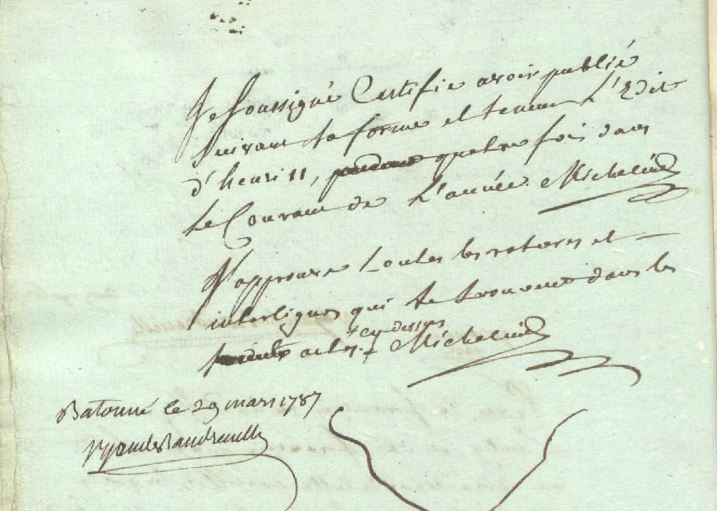 Je Soussigné Certifie avoir publié
suivant la forme et teneur L'Edit
d'henri 11, quatre fois dans
le Courant de L'année. Michelin
J'approuve toutes les ratures et
interlignes qui se trouvent dans les
actes cy-dessus Michelin
Batonné le 29 mars 1787